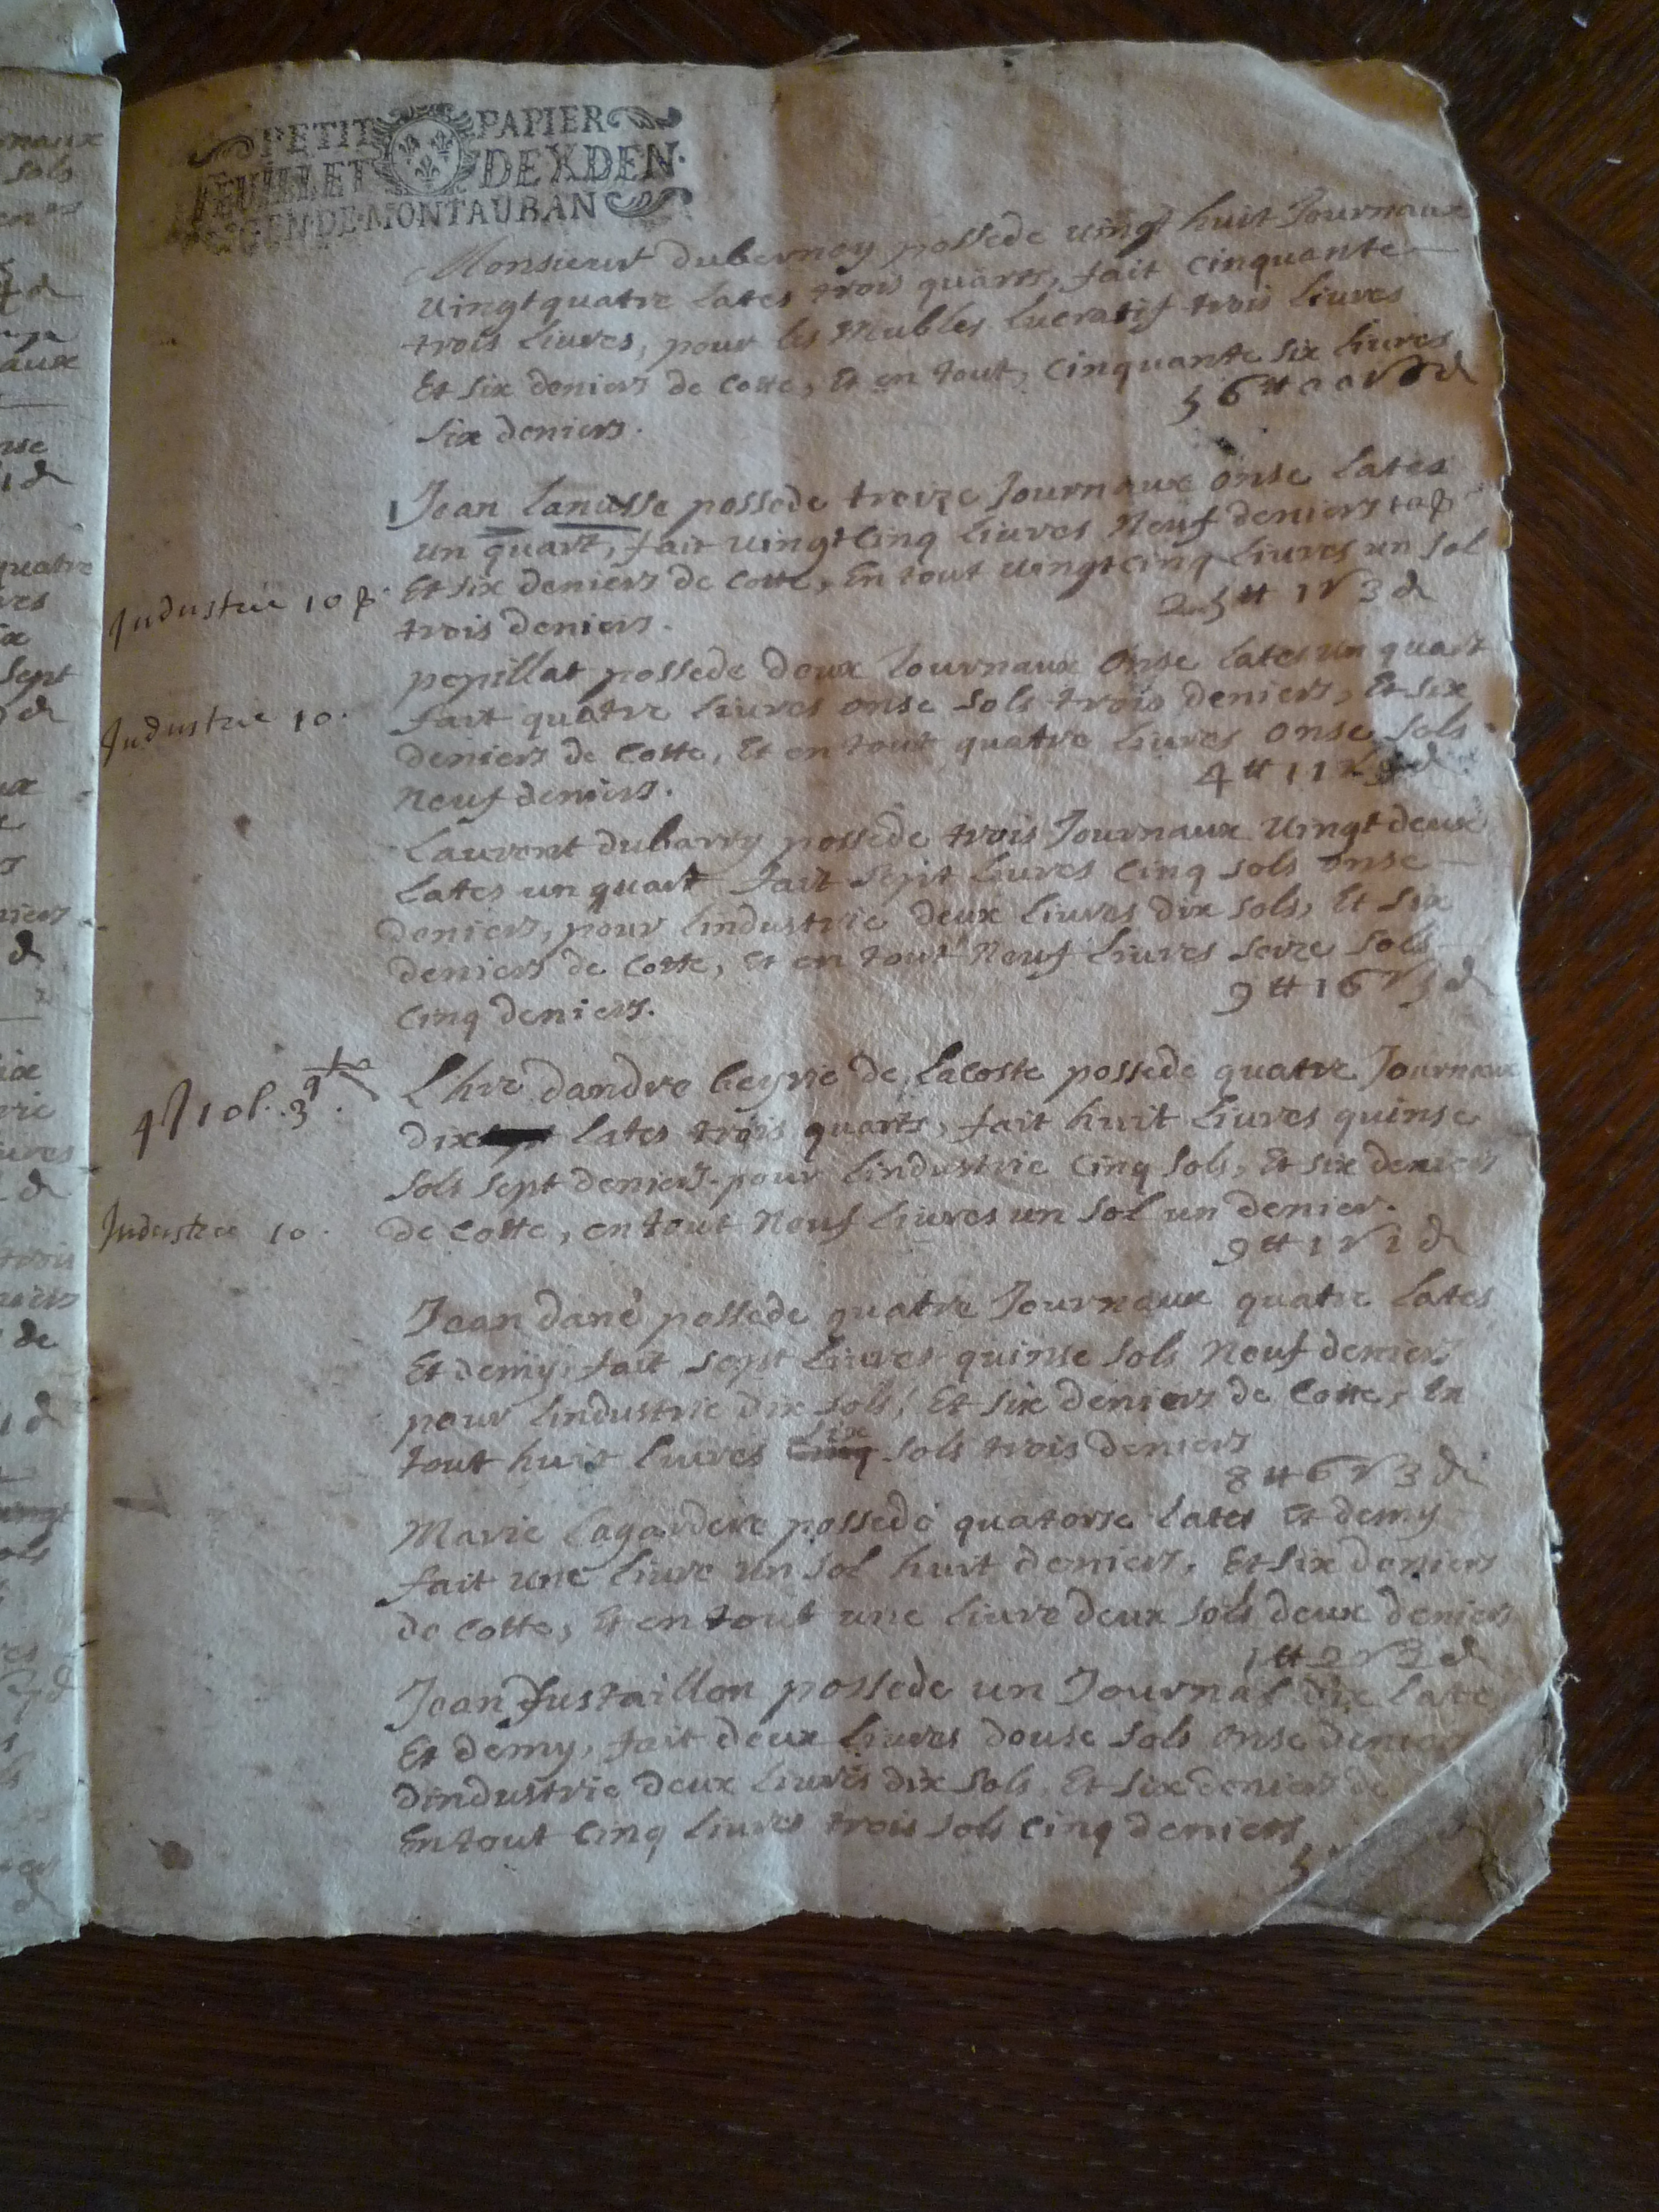 PETIT PAPIER
FEUILLET DE X DEN.
GEN. DE MONTAUBAN
Monsieur dubernoy possede vingt huit Journaux
vingt quatre lates trois quarts, fait cinquante
trois livres, pour les Meubles lucratif trois livres
Et six deniers de Cotte, Et en tout, Cinquante six livres
six deniers.
56 tt 00 s 6 d
Jean lanusse possede treize Journaux onse lates
un quart, fait vingt cinq livres Neuf deniers
Et six deniers de Cotte, En tout vingt cinq livres un sol
Industrie 10
trois deniers.
25 tt 1 s 3 d
pepillat possede deux Journaux onse lates un quart
Industrie 10.
fait quatre livres onse sols trois deniers, Et six
deniers de Cotte, Et en tout quatre livres onse sols
Neuf deniers.
4 tt 11 s 9 d
Laurent dubarry possede trois Journaux vingt deux
lates un quart fait sept livres cinq sols onse
deniers, pour lindustrie deux livres dix sols, Et six
deniers de Cotte, Et en tout Neuf livres seize sols
cinq deniers.
9 tt 16 s 5 d
Lhre dandre beyrie de Lacoste possede quatre Journaux
dix lates trois quarts, fait huit livres quinse
sols sept deniers. pour lindustrie Cinq sols, Et six deniers
Industrie 10.
de Cotte, en tout Neuf livres un sol un denier.
9 tt 1 s 1 d
Jean dané possede quatre Journaux quatre lates
Et demy, fait sept livres quinse sols Neuf deniers
pour lindustrie dix sols, Et six deniers de Cotte, En
tout huit livres cinq six sols trois deniers
8 tt 6 s 3 d
Marie lagardere possede quatorse lates Et demy
fait une livre un sol huit deniers, Et six deniers
de Cotte, Et en tout une livre deux sols deux deniers
1 tt 2 s 2 d
Jean Justaillon possede un Journal dix late
Et demy, fait deux livres douse sols onse deniers
dindustrie deux livres dix sols, Et six deniers de
En tout Cinq livres trois sols Cinq deniers
5